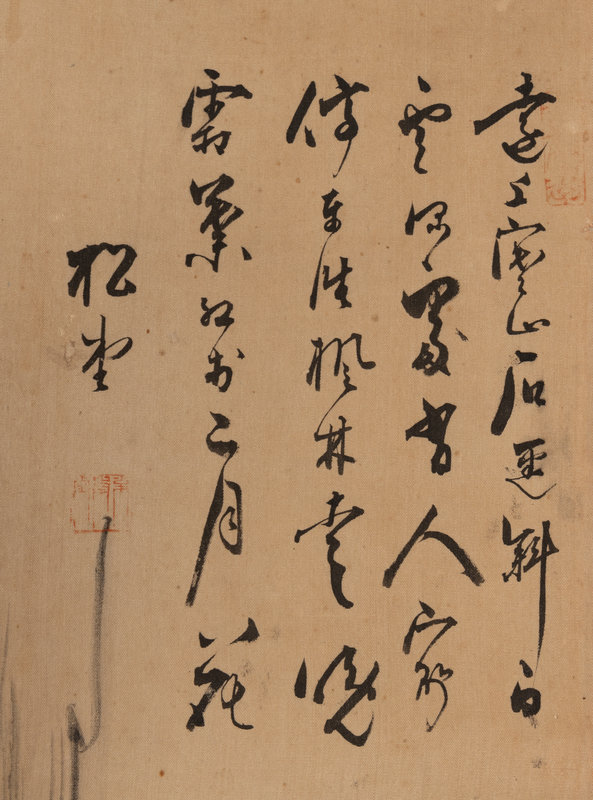 遠上寒山石逕斜白
雲深處有人家
停車楓林愛晚
霜葉紅於二月花
松堂